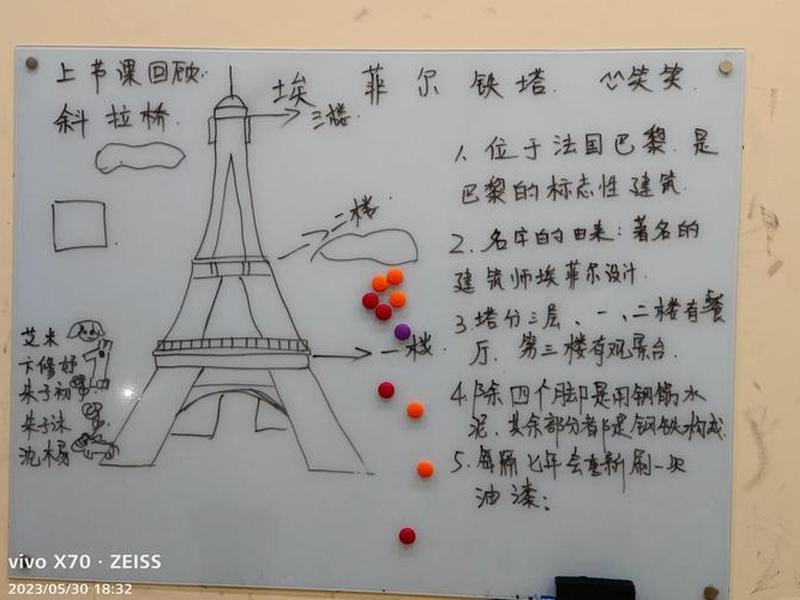 上节课回顾:
斜拉桥.
埃 菲 尔 铁 塔. 笑笑.
三楼.
二楼.
一楼.
1. 位于法国巴黎.是
巴黎的标志性建筑.
2. 名字的由来:著名的
建筑师埃菲尔设计.
3. 塔分三层、一、二楼有餐
厅.第三楼有观景台.
4. 除四个脚是用钢筋水
泥.其余部分都是钢铁构成.
5. 每隔七年会重新刷一次
油漆;
艾米
卞修妤
朱子初
朱子沫
沈杨
vivo X70 · ZEISS
2023/05/30 18:32